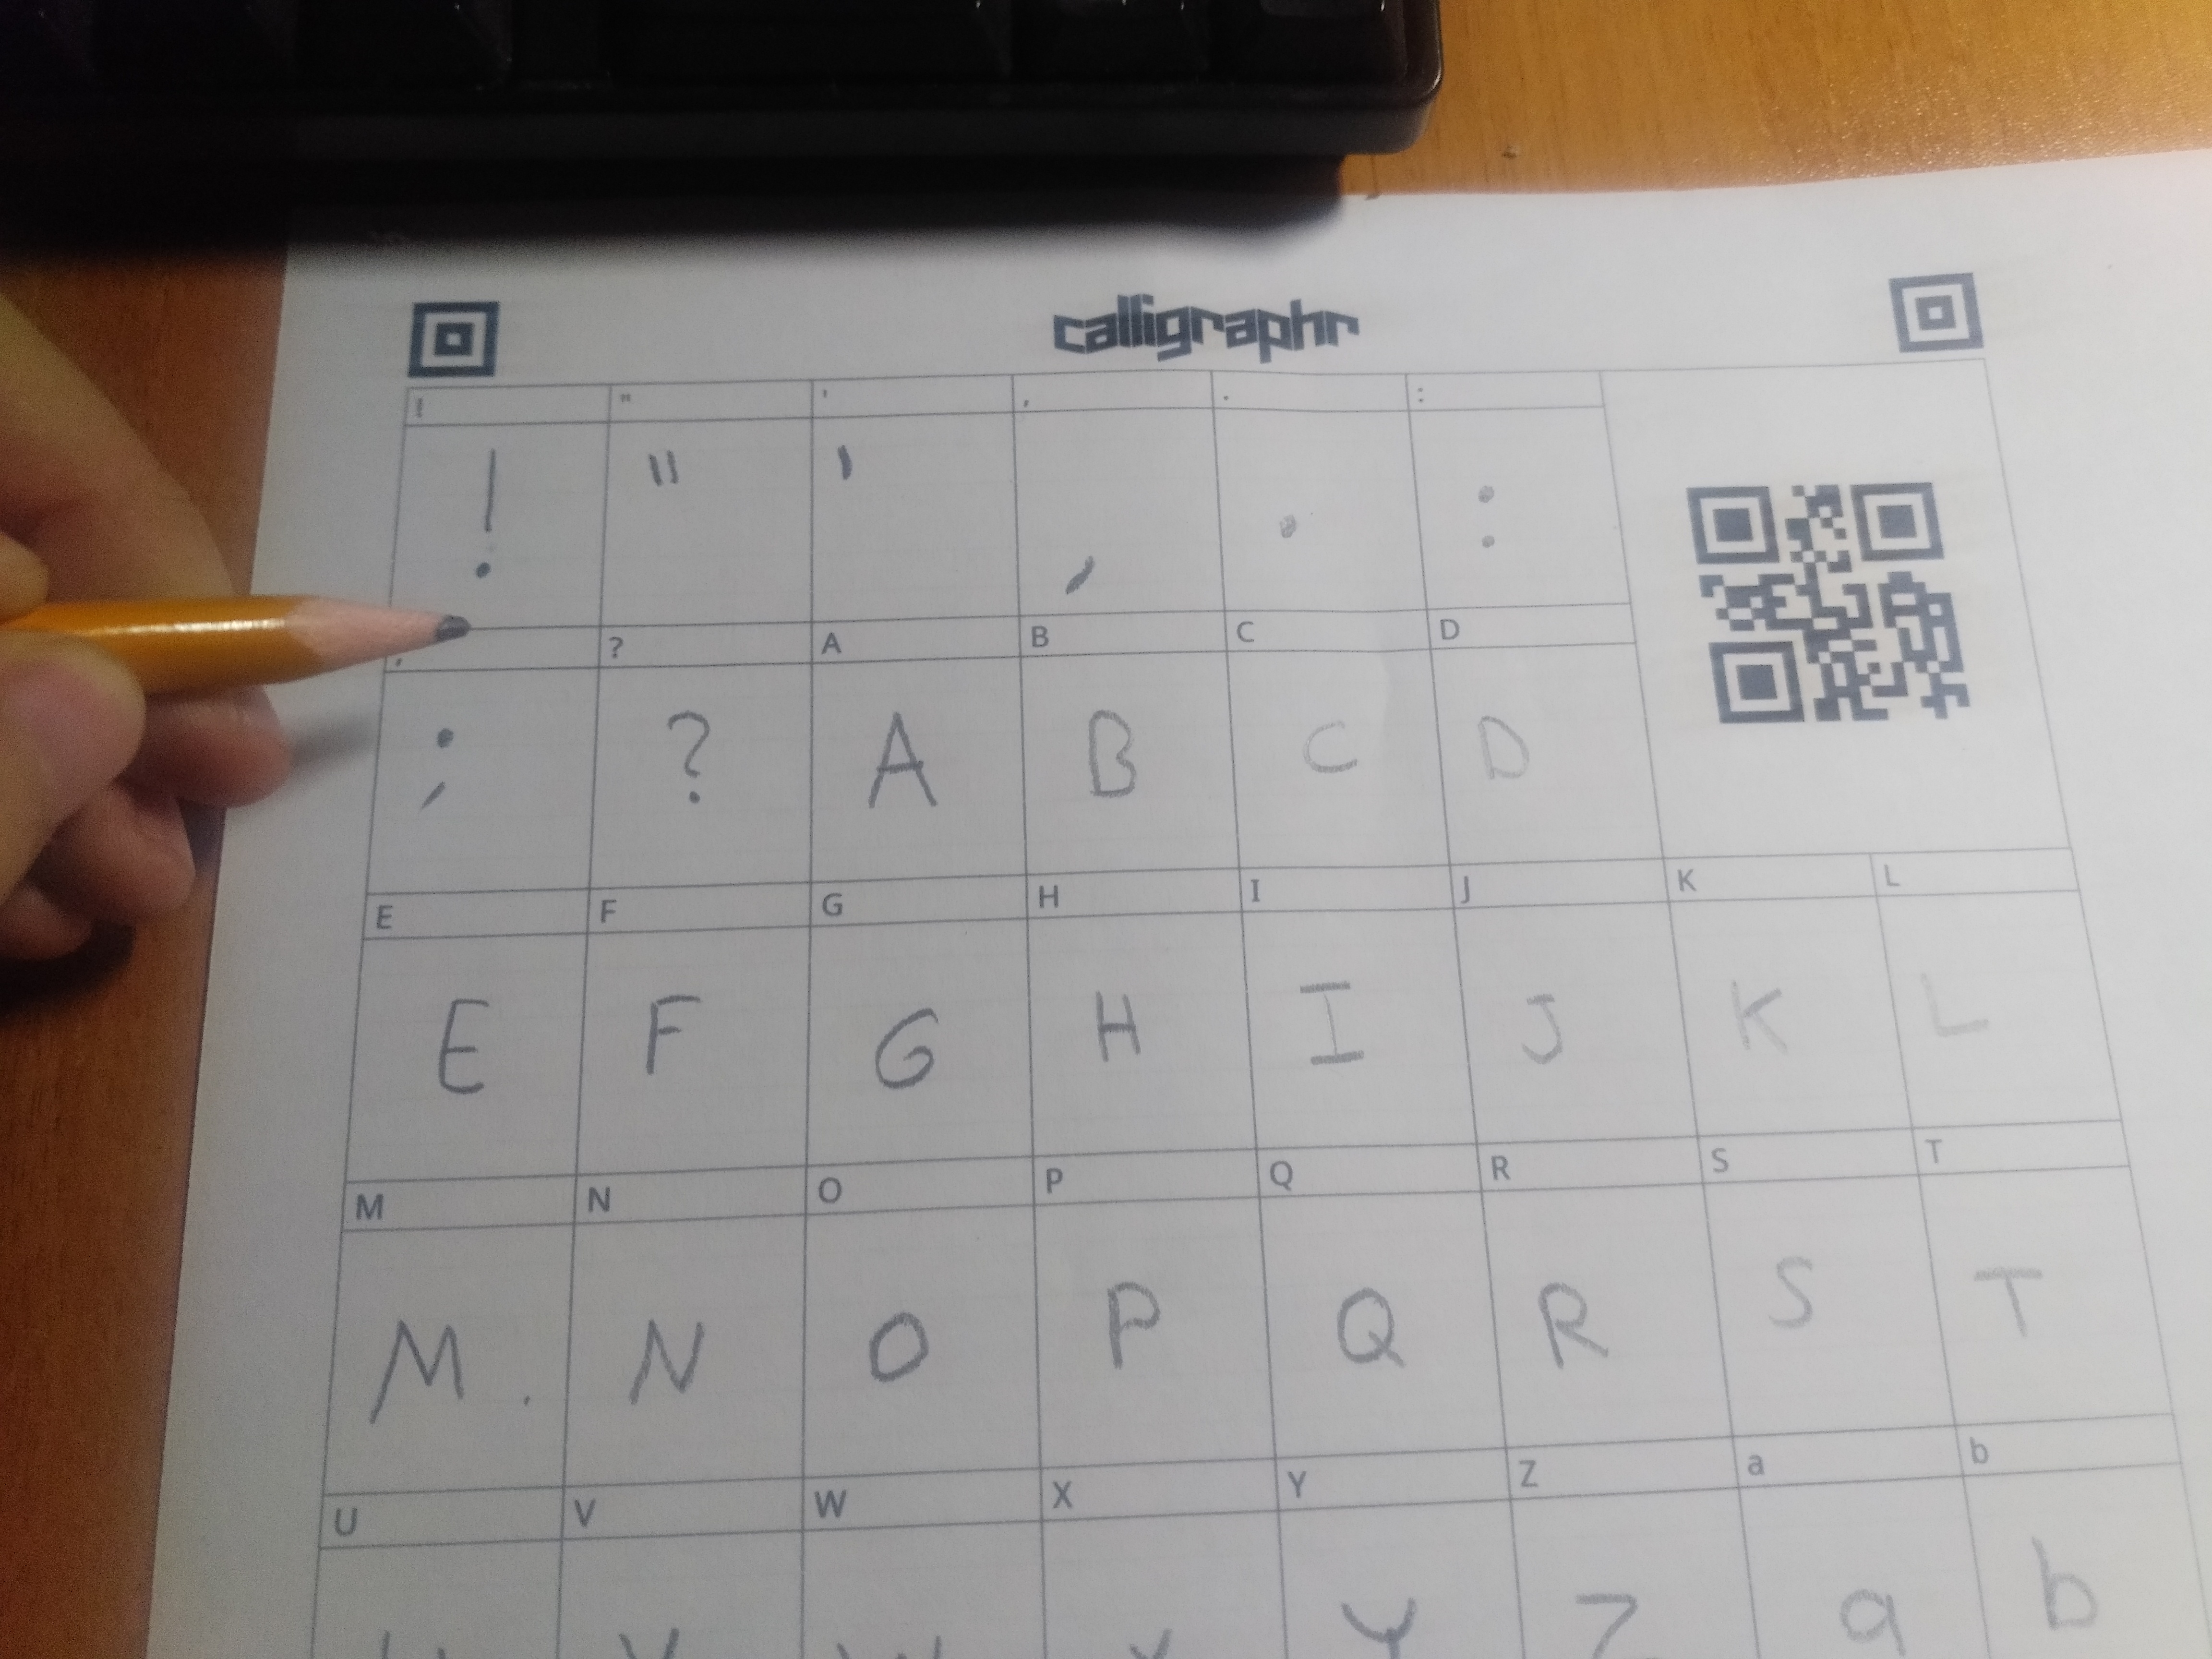 calligraphr
! " ' , . :
! " ' , . :
; ? A B C D
; ? A B C D
E F G H I J K L
E F G H I J K L
M N O P Q R S T
M . N O P Q R S T
U V W X Y Z a b
U V W X Y Z a b